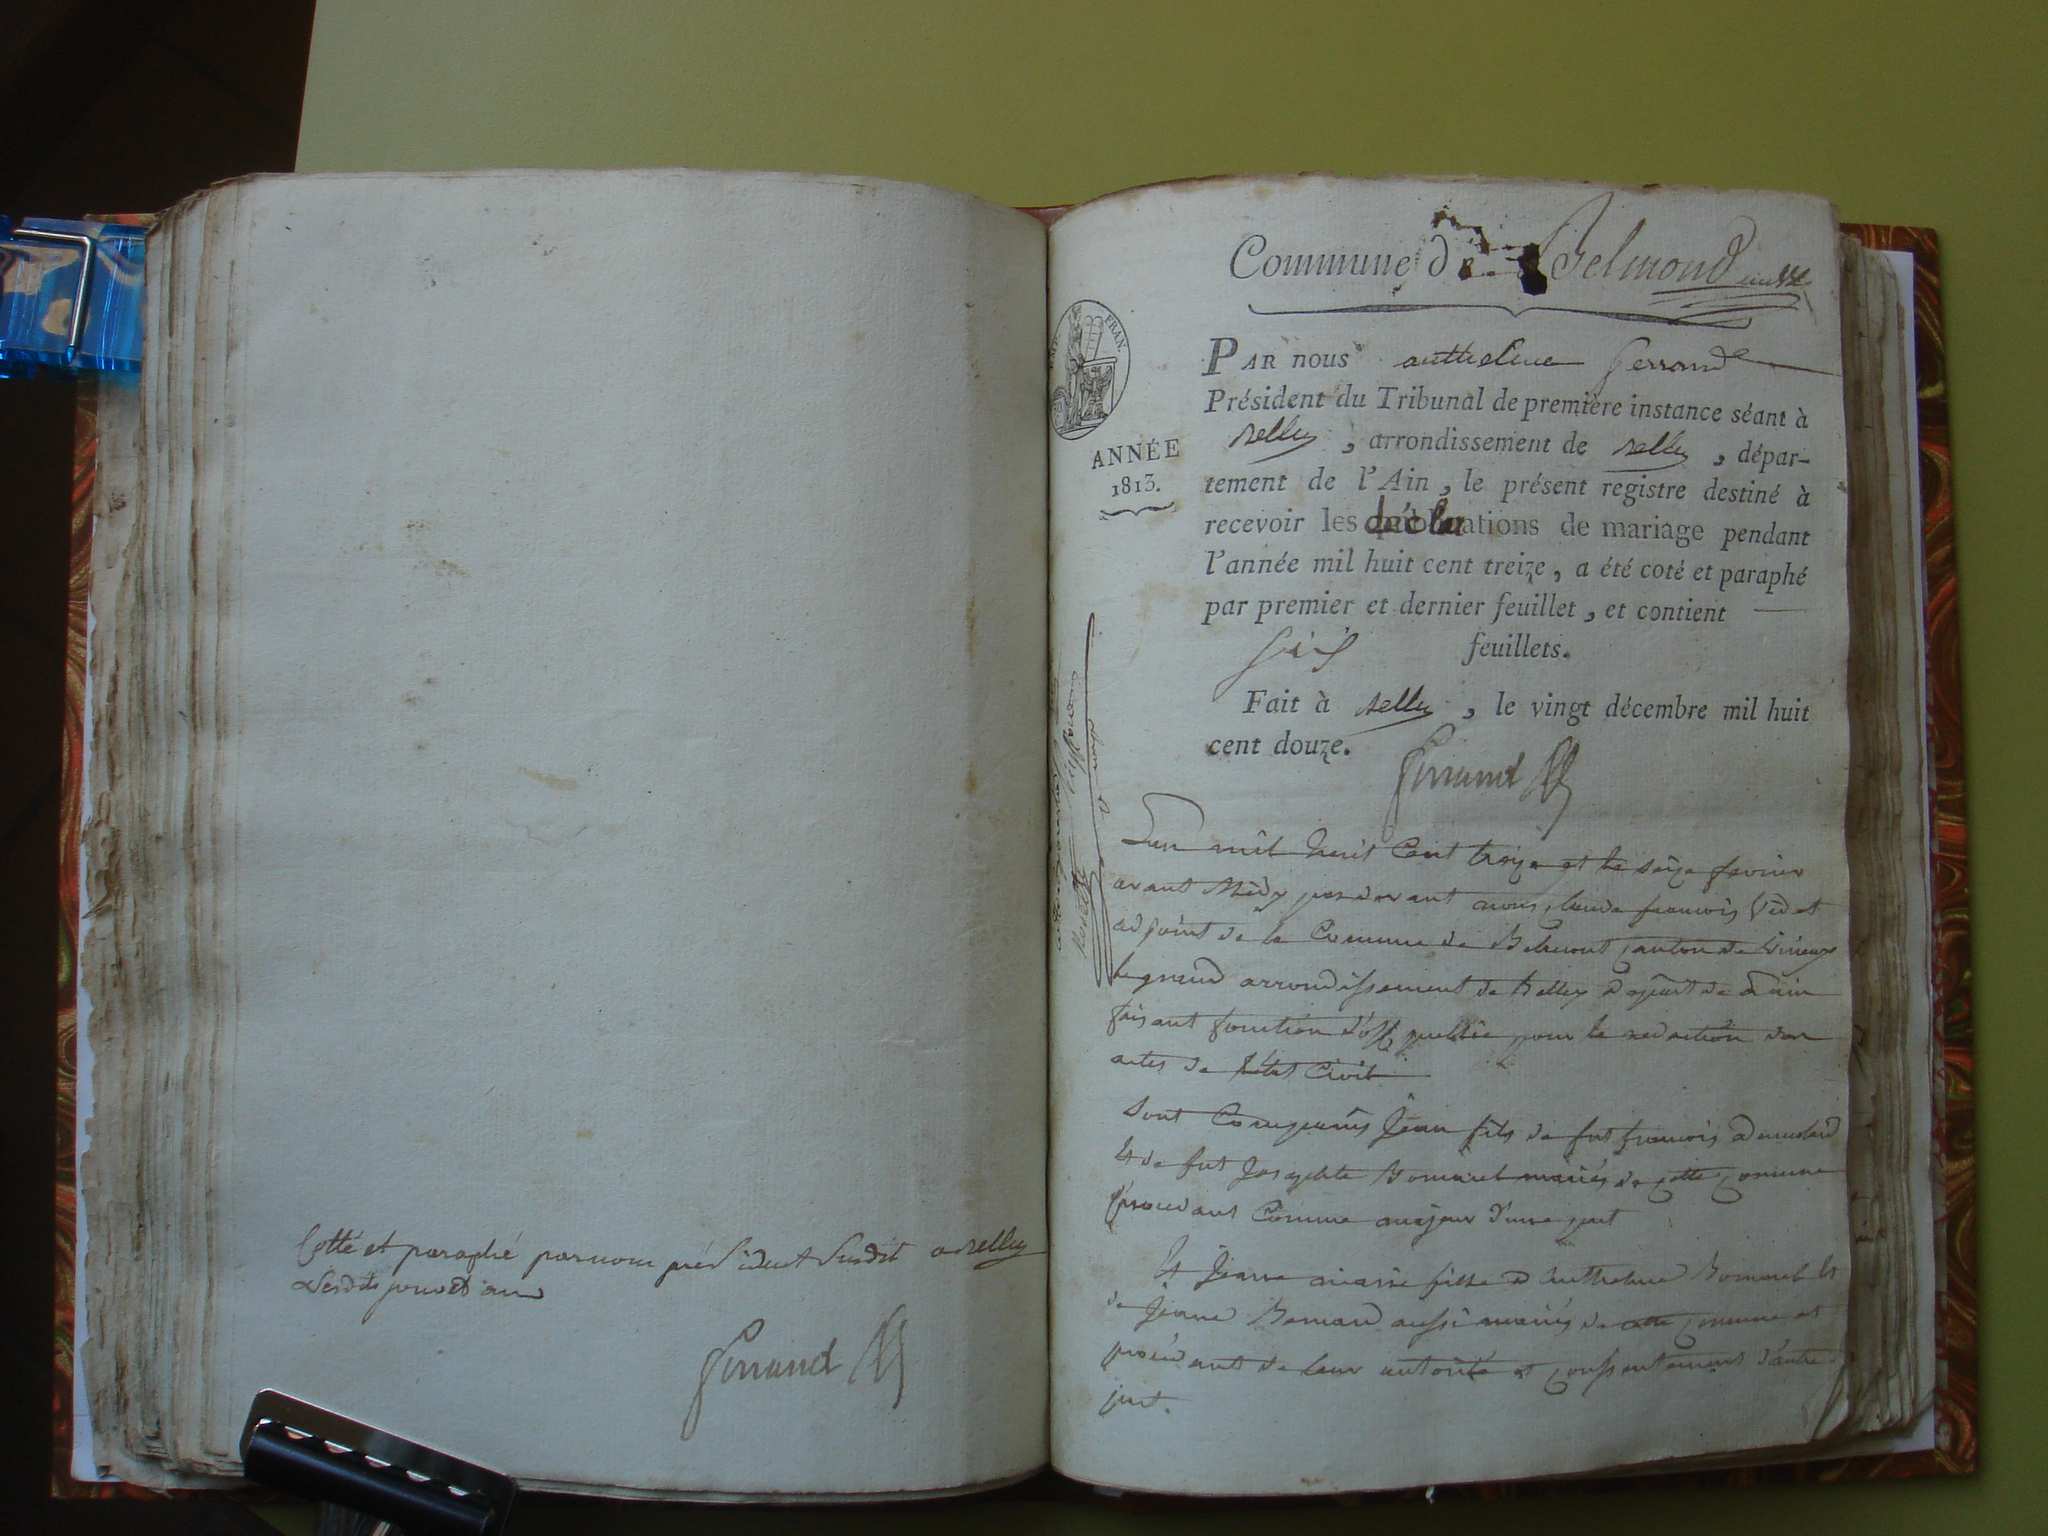 Cotté et paraphé par nous président susdit a Belley
Lesdits jour et an
Ferrand
Commune de Belmond
EMP. FRAN.
ANNÉE
1813.
PAR nous anthelme ferrand
Président du Tribunal de premiere instance séant à
Belley, arrondissement de Belley, dépar-
tement de l'Ain, le présent registre destiné à
recevoir les déclarations de mariage pendant
l'année mil huit cent treize, a été coté et paraphé
par premier et dernier feuillet, et contient
six feuillets.
Fait à Belley, le vingt décembre mil huit
cent douze.
Ferrand
L'an mil huit Cent treize et le seize fevrier
avant Midy par devant nous, françois
adjoint de la Commune de Belmont Canton de Virieux
le grand arrondissement de Belley depart de L'ain
faisant fonction d'off publie pour la redaction des
actes de l'état Civil
Sont Comparus Jean fils de fut françois
Et de fut Josephte mariés de cette Comune
procedant Comme majeur d'une part
Et Jeanne marie fille d'Anthelme Et
de Jeane aussi mariés de cette Comune et
procedant de leur autorité et Consentement d'autre
part.